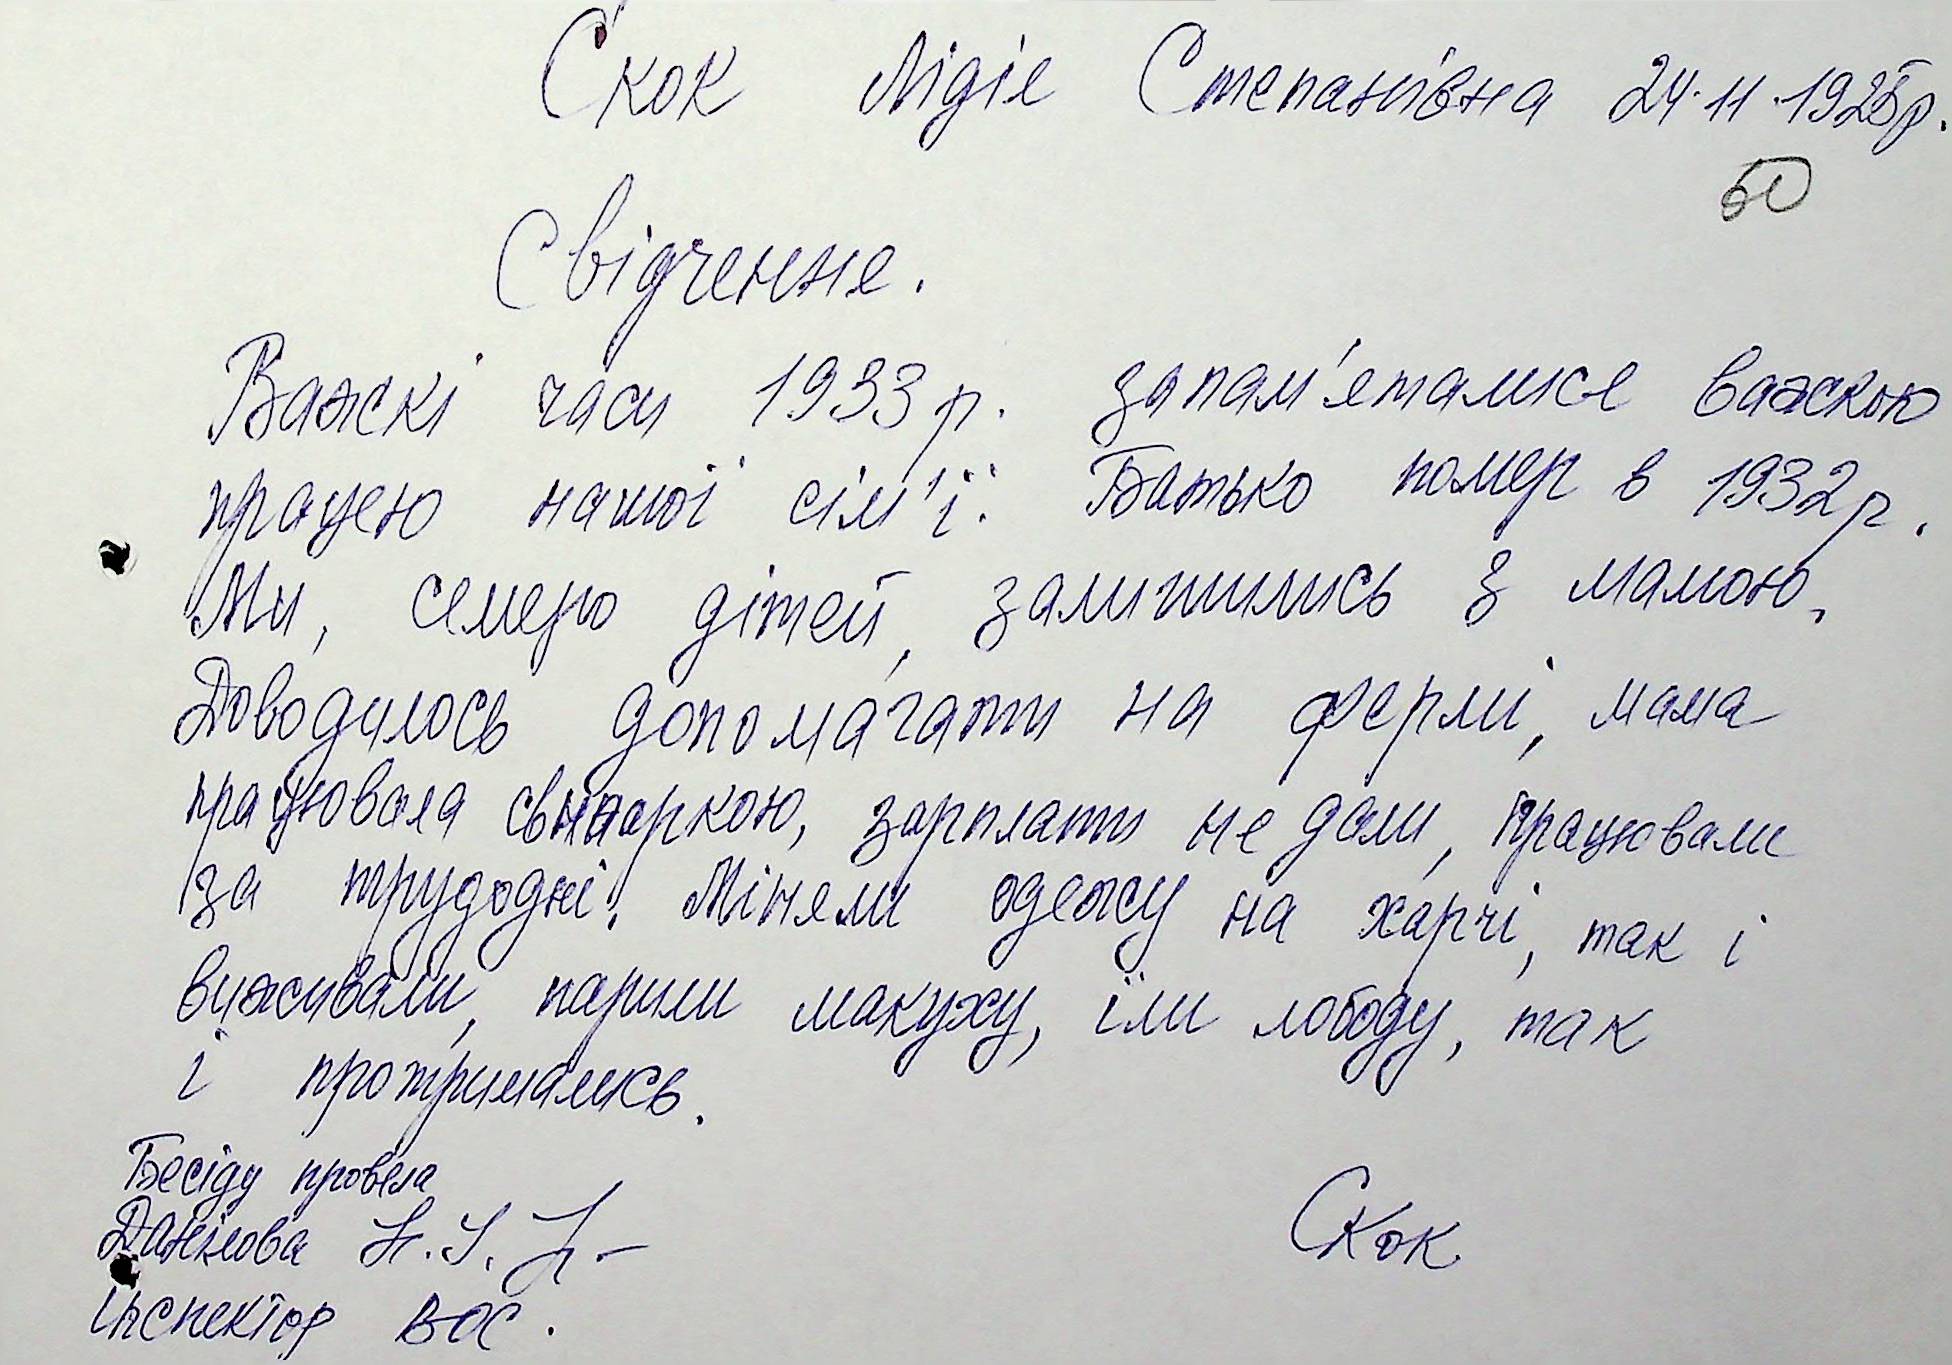 Скок Лідія Степанівна 24.11.1925р.
Свідчення.
Важкі часи 1933р. запам'яталися важкою
працею нашої сім'ї. Батько помер в 1932р.
Ми, семеро дітей, залишились з мамою.
Доводилось допомагати на фермі, мама
працювала свинаркою, зарплати не дали, працювали
за трудодні. Міняли одежу на харчі, так і
виживали, парили макуху, їли лободу, так
і протримались.
Бесіду провела
Данілова Н.І.
Скок
інспектор ВОС.